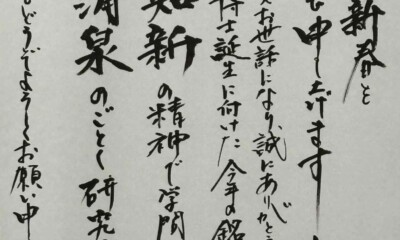 新春と
申し上げます
お世話になり、誠にありがとう
博士誕生に付けた 今年の銘
知新の精神で学問
涌泉のごとく研究
どうぞよろしくお願い申